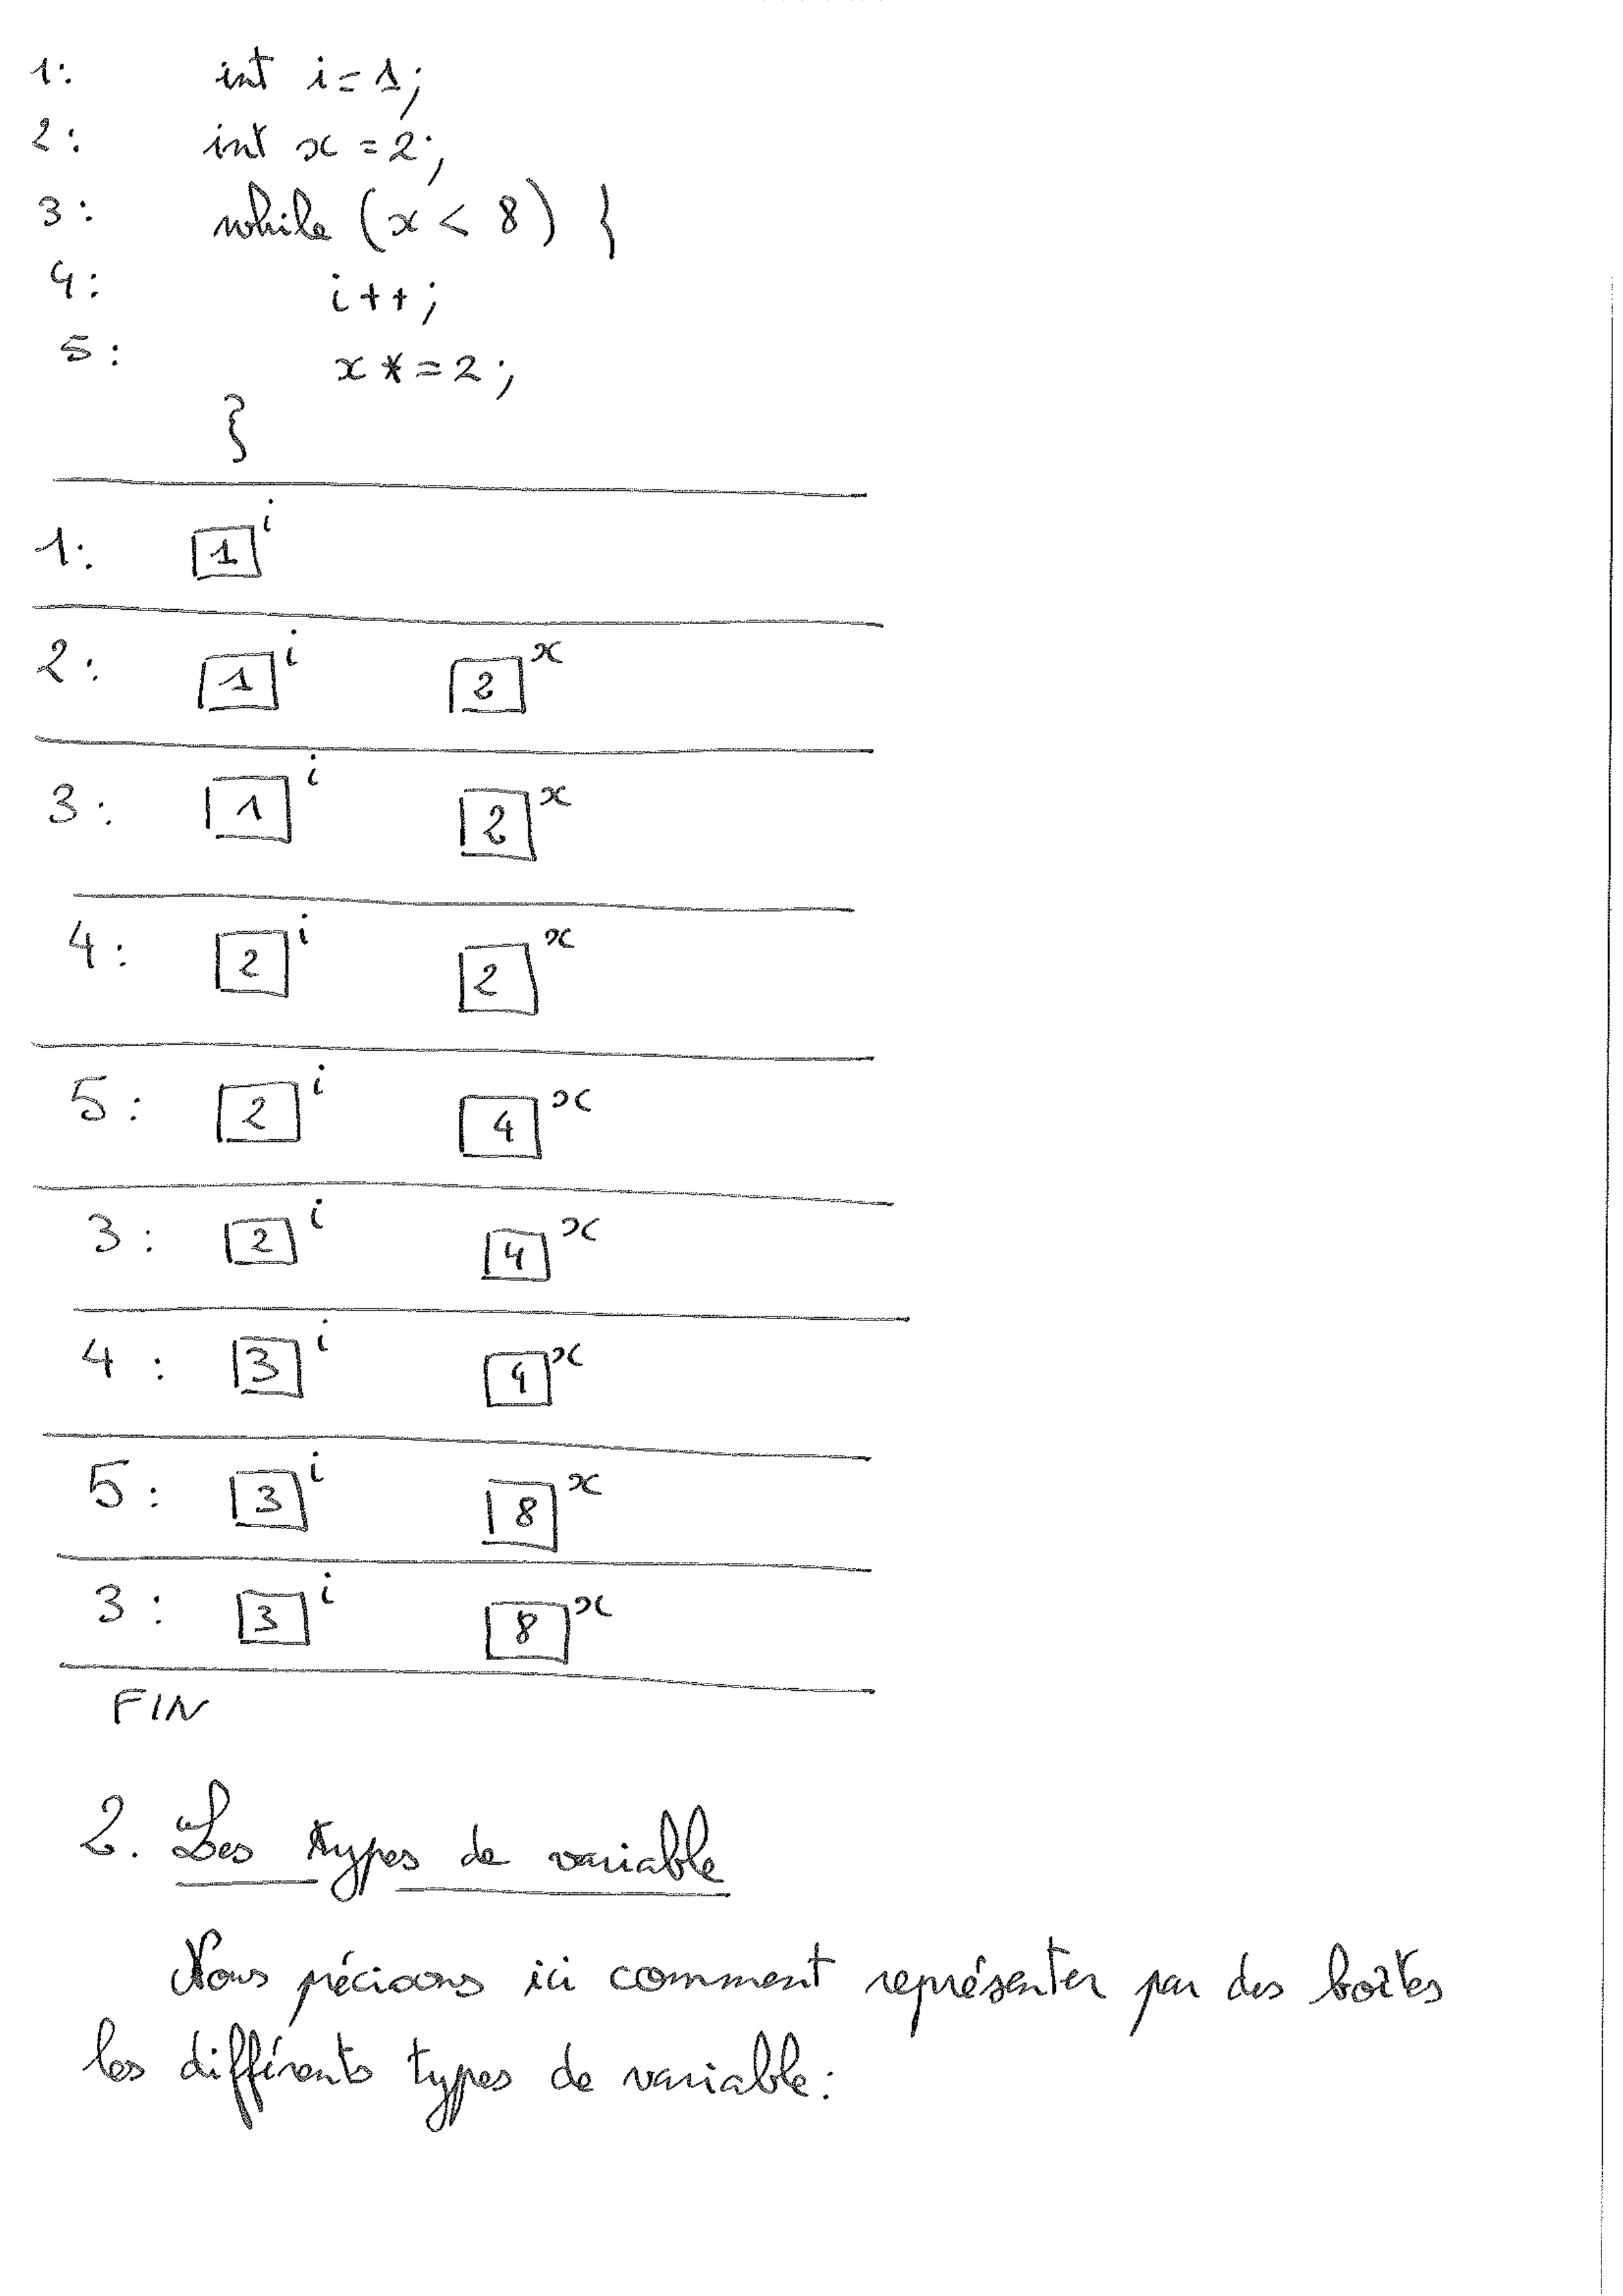 1: int i = 1;
2: int x = 2;
3: while (x < 8) {
4: i++;
5: x *= 2;
}
1: 1 i
2: 1 i 2 x
3: 1 i 2 x
4: 2 i 2 x
5: 2 i 4 x
3: 2 i 4 x
4: 3 i 4 x
5: 3 i 8 x
3: 3 i 8 x
FIN
2. Les types de variable
Nous précisons ici comment représenter par des boîtes
les différents types de variable: